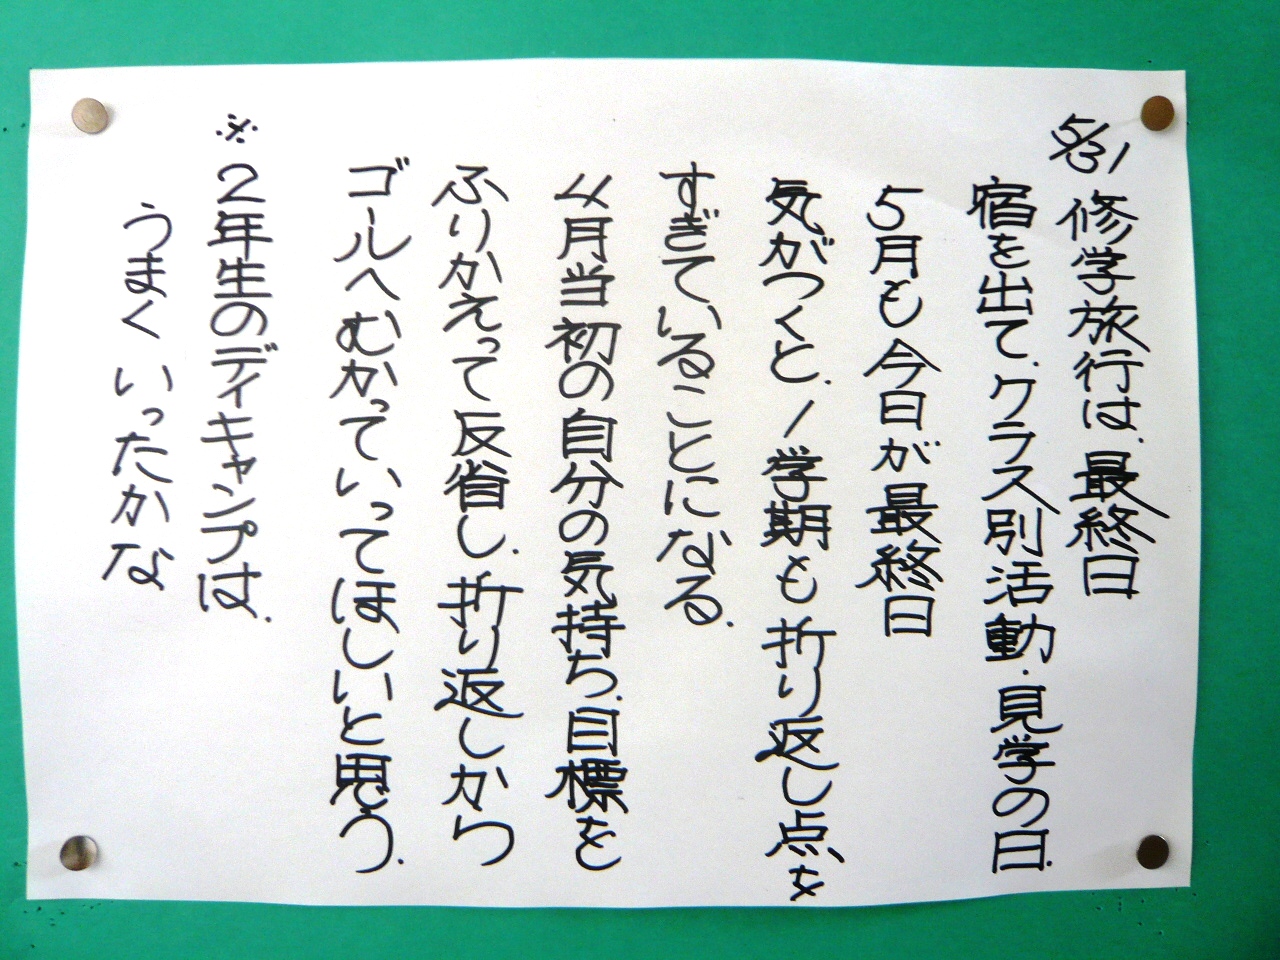 5/31 修学旅行は、最終日
宿を出て、クラス別活動・見学の日.
5月も今日が最終日
気がつくと、1学期も折り返し点を
すぎていることになる.
4月当初の自分の気持ち、目標を
ふりかえって反省し、折り返しから
ゴールへむかっていってほしいと思う.
※2年生のディキャンプは.
うまくいったかな